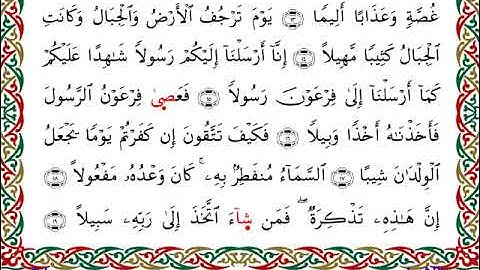 غُصَّةٍ وَعَذَابًا أَلِيمًا ۝١٣ يَوْمَ تَرْجُفُ ٱلْأَرْضُ وَٱلْجِبَالُ وَكَانَتِ
ٱلْجِبَالُ كَثِيبًا مَّهِيلًا ۝١٤ إِنَّآ أَرْسَلْنَآ إِلَيْكُمْ رَسُولًا شَٰهِدًا عَلَيْكُمْ
كَمَآ أَرْسَلْنَآ إِلَىٰ فِرْعَوْنَ رَسُولًا ۝١٥ فَعَصَىٰ فِرْعَوْنُ ٱلرَّسُولَ
فَأَخَذْنَٰهُ أَخْذًا وَبِيلًا ۝١٦ فَكَيْفَ تَتَّقُونَ إِن كَفَرْتُمْ يَوْمًا يَجْعَلُ
ٱلْوِلْدَٰنَ شِيبًا ۝١٧ ٱلسَّمَآءُ مُنفَطِرٌۢ بِهِۦ ۚ كَانَ وَعْدُهُۥ مَفْعُولًا ۝١٨
إِنَّ هَٰذِهِۦ تَذْكِرَةٌ ۖ فَمَن شَآءَ ٱتَّخَذَ إِلَىٰ رَبِّهِۦ سَبِيلًا ۝١٩